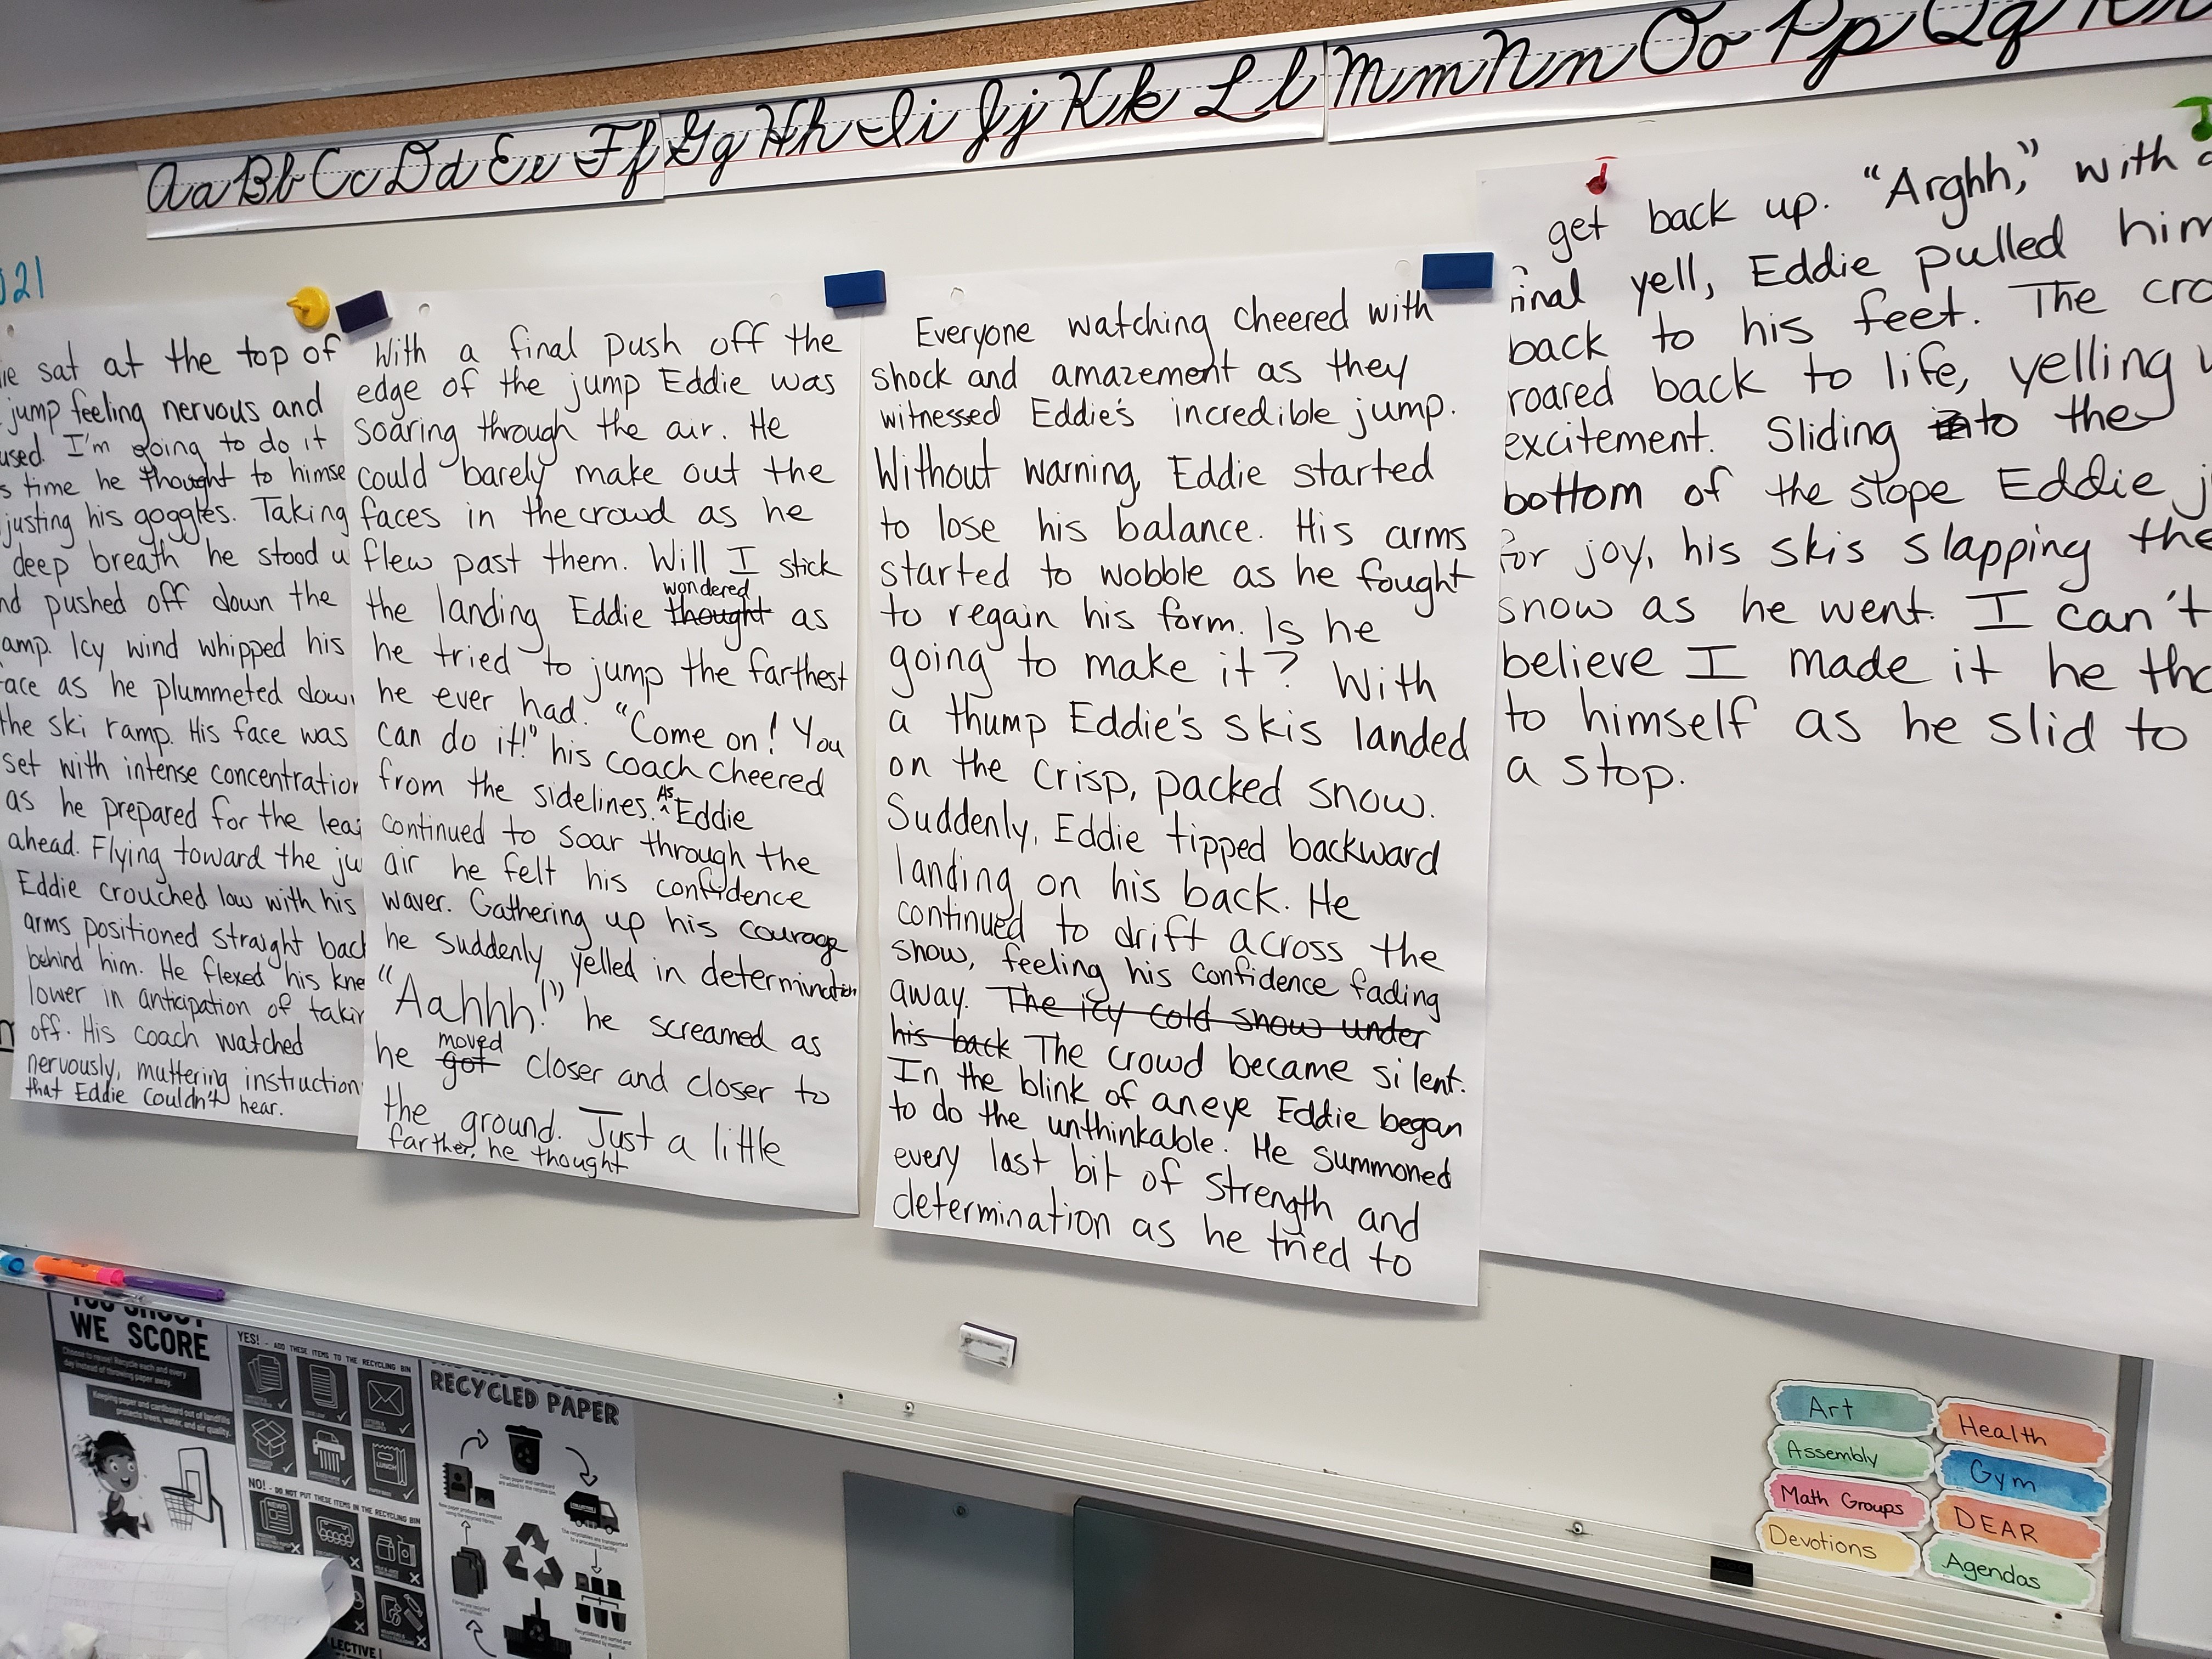 Aa Bb Cc Dd Ee Ff Gg Hh Ii Jj Kk Ll Mm Nn Oo Pp Qq
021
sat at the top of
jump feeling nervous and
I'm going to do it
time he thought to
justing his goggles. Taking
deep breath he stood
pushed off down the
Icy wind whipped his
as he plummeted
the ski ramp. His face was
set with intense concentration
as he prepared for the
ahead. Flying toward the
Eddie crouched low with his
arms positioned straight back
behind him. He flexed his
lower in anticipation of
off. His coach watched
nervously, muttering instruction
that Eddie couldn't hear.
With a final push off the
edge of the jump Eddie was
soaring through the air. He
could barely make out the
faces in the crowd as he
flew past them. Will I stick
wondered
the landing Eddie thought as
he tried to jump the farthest
he ever had. "Come on! You
can do it!" his coach cheered
from the sidelines. As Eddie
continued to soar through the
air he felt his confidence
waver. Gathering up his courage
he suddenly yelled in determination
"Aahhh!" he screamed as
moved
he got closer and closer to
the ground. Just a little
farther, he thought
Everyone watching cheered with
shock and amazement as they
witnessed Eddie's incredible jump.
Without warning, Eddie started
to lose his balance. His arms
started to wobble as he fought
to regain his form. Is he
going to make it? With
a thump Eddie's skis landed
on the crisp, packed snow.
Suddenly, Eddie tipped backward
landing on his back. He
continued to drift across the
snow, feeling his confidence fading
away. The icy cold snow under
his back The crowd became silent.
In the blink of an eye Eddie began
to do the unthinkable. He summoned
every last bit of strength and
determination as he tried to
get back up. "Arghh," with
yell, Eddie pulled
back to his feet. The
roared back to life, yelling
excitement. Sliding into the
bottom of the slope Eddie
for joy, his skis slapping the
snow as he went. I can't
believe I made it he
to himself as he slid to
a stop.
WE SCORE
Choose to reuse! Recycle each and every
day instead of throwing paper away.
Keeping paper and cardboard out of landfills
protects trees, water, and air quality.
YES! - ADD THESE ITEMS TO THE RECYCLING BIN
LUNCH
NO! - DO NOT PUT THESE ITEMS IN THE RECYCLING BIN
NEWS
RECYCLED PAPER
Art
Assembly
Math Groups
Devotions
Health
Gym
DEAR
Agendas